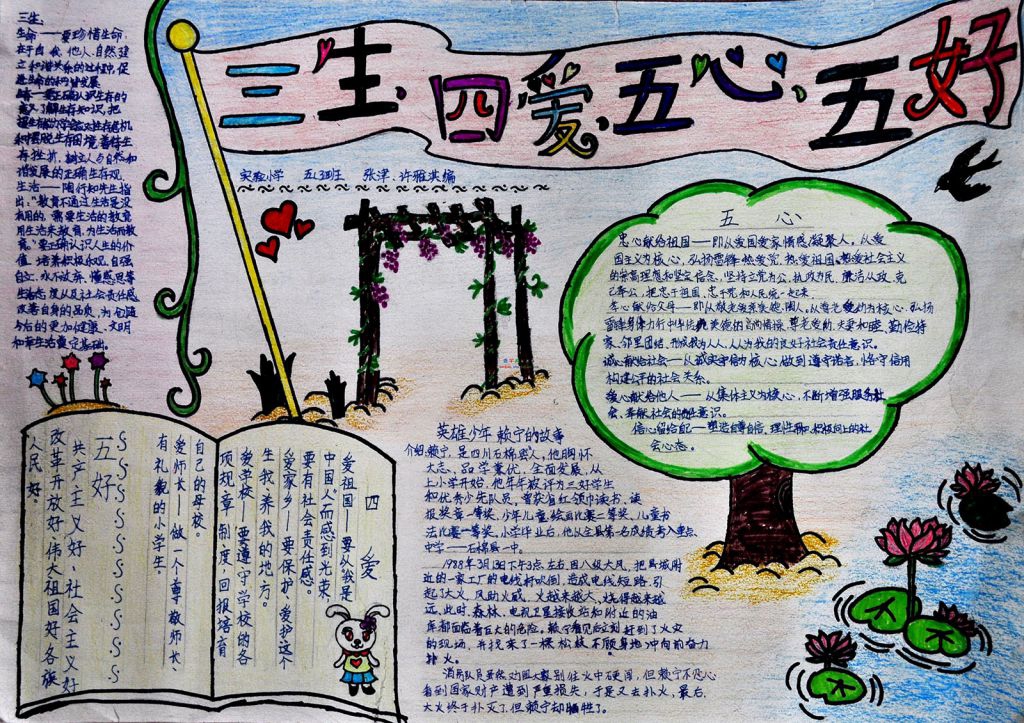 三生、四爱、五心、五好
实验小学 五(3)班 张津、许雅淇编
三生:
生命——要珍惜生命,
在于自我、他人、自然建
立和谐关系的过程中,促
进生命的和谐发展
生存——要正确认识生存的
意义,了解生存知识,把
握生存
和摆脱生存困境,善待生
存挫折,树立人与自然和
谐发展的正确生存观。
生活——陶行知先生指
出:“教育不通过生活是没
有用的,需要生活的教育,
用生活来教育,为生活而教
育。”要正确认识人生的价
值,培养积极乐观、自强
自立、永不放弃、懂感恩等
生活态度以及社会责任感
改善自身的品质,为创造
今后的更加健康、文明
和幸福生活奠定基础。
五心
忠心献给祖国——即从爱国爱家情感凝聚人。从爱
国主义为核心,弘扬雷锋热爱党、热爱祖国、热爱社会主义
的崇高理想和坚定信念,坚持立党为公,执政为民,廉洁从政,克
己奉公,把忠于祖国、忠于党和人民统一起来。
孝心献给父母——即从敬老爱亲美德育人。从尊老爱幼为核心,弘扬
雷锋身体力行中华传统美德的高尚情操,尊老爱幼、夫妻和睦、勤俭持
家、邻里团结,形成我为人人、人人为我的良好社会责任意识。
诚心献给社会——从诚实守信为核心,做到遵守诺言、恪守信用
构建公平的社会关系。
爱心献给他人——从集体主义为核心,不断增强服务社
会、奉献社会的责任意识。
信心留给自己——塑造自尊自信、理性平和、积极向上的社
会心态。
四爱
爱祖国——要从我是
中国人而感到光荣,
要有社会责任感。
爱家乡——要保护、爱护这个
生我养我的地方。
爱学校——要遵守学校的各
项规章制度,回报培育
自己的母校。
爱师长——做一个尊敬师长、
有礼貌的小学生。
五好
共产主义好、社会主义好
改革开放好、伟大祖国好、各族
人民好。
英雄少年 赖宁的故事
介绍:赖宁,是四川石棉县人,他胸怀
大志、品学兼优、全面发展,从
上小学开始,他年年被评为三好学生
和优秀少先队员,曾获省红领巾读书、读
报奖章一等奖,少年儿童绘画比赛二等奖,儿童书
法比赛一等奖。小学毕业后,他从全县第一名成绩考入重点
中学——石棉县一中。
1988年3月13日下午3点左右,因八级大风,把县城附
近的一家工厂的电线杆吹倒,造成电线短路,引
起了大火,风助火威,火越来越大,烧得越来越
远,此时,森林、电视卫星接收站和附近的油
库都面临着巨大的危险。赖宁看见后立刻赶到了火灾
的现场,并找来了一根松枝不顾身地冲向前奋力
扑火。
消防队员虽然对围大家别往火中心硬闯,但赖宁不忍心
看到国家财产遭到严重损失,于是又去扑火,最后,
大火终于扑灭了,但赖宁却牺牲了。